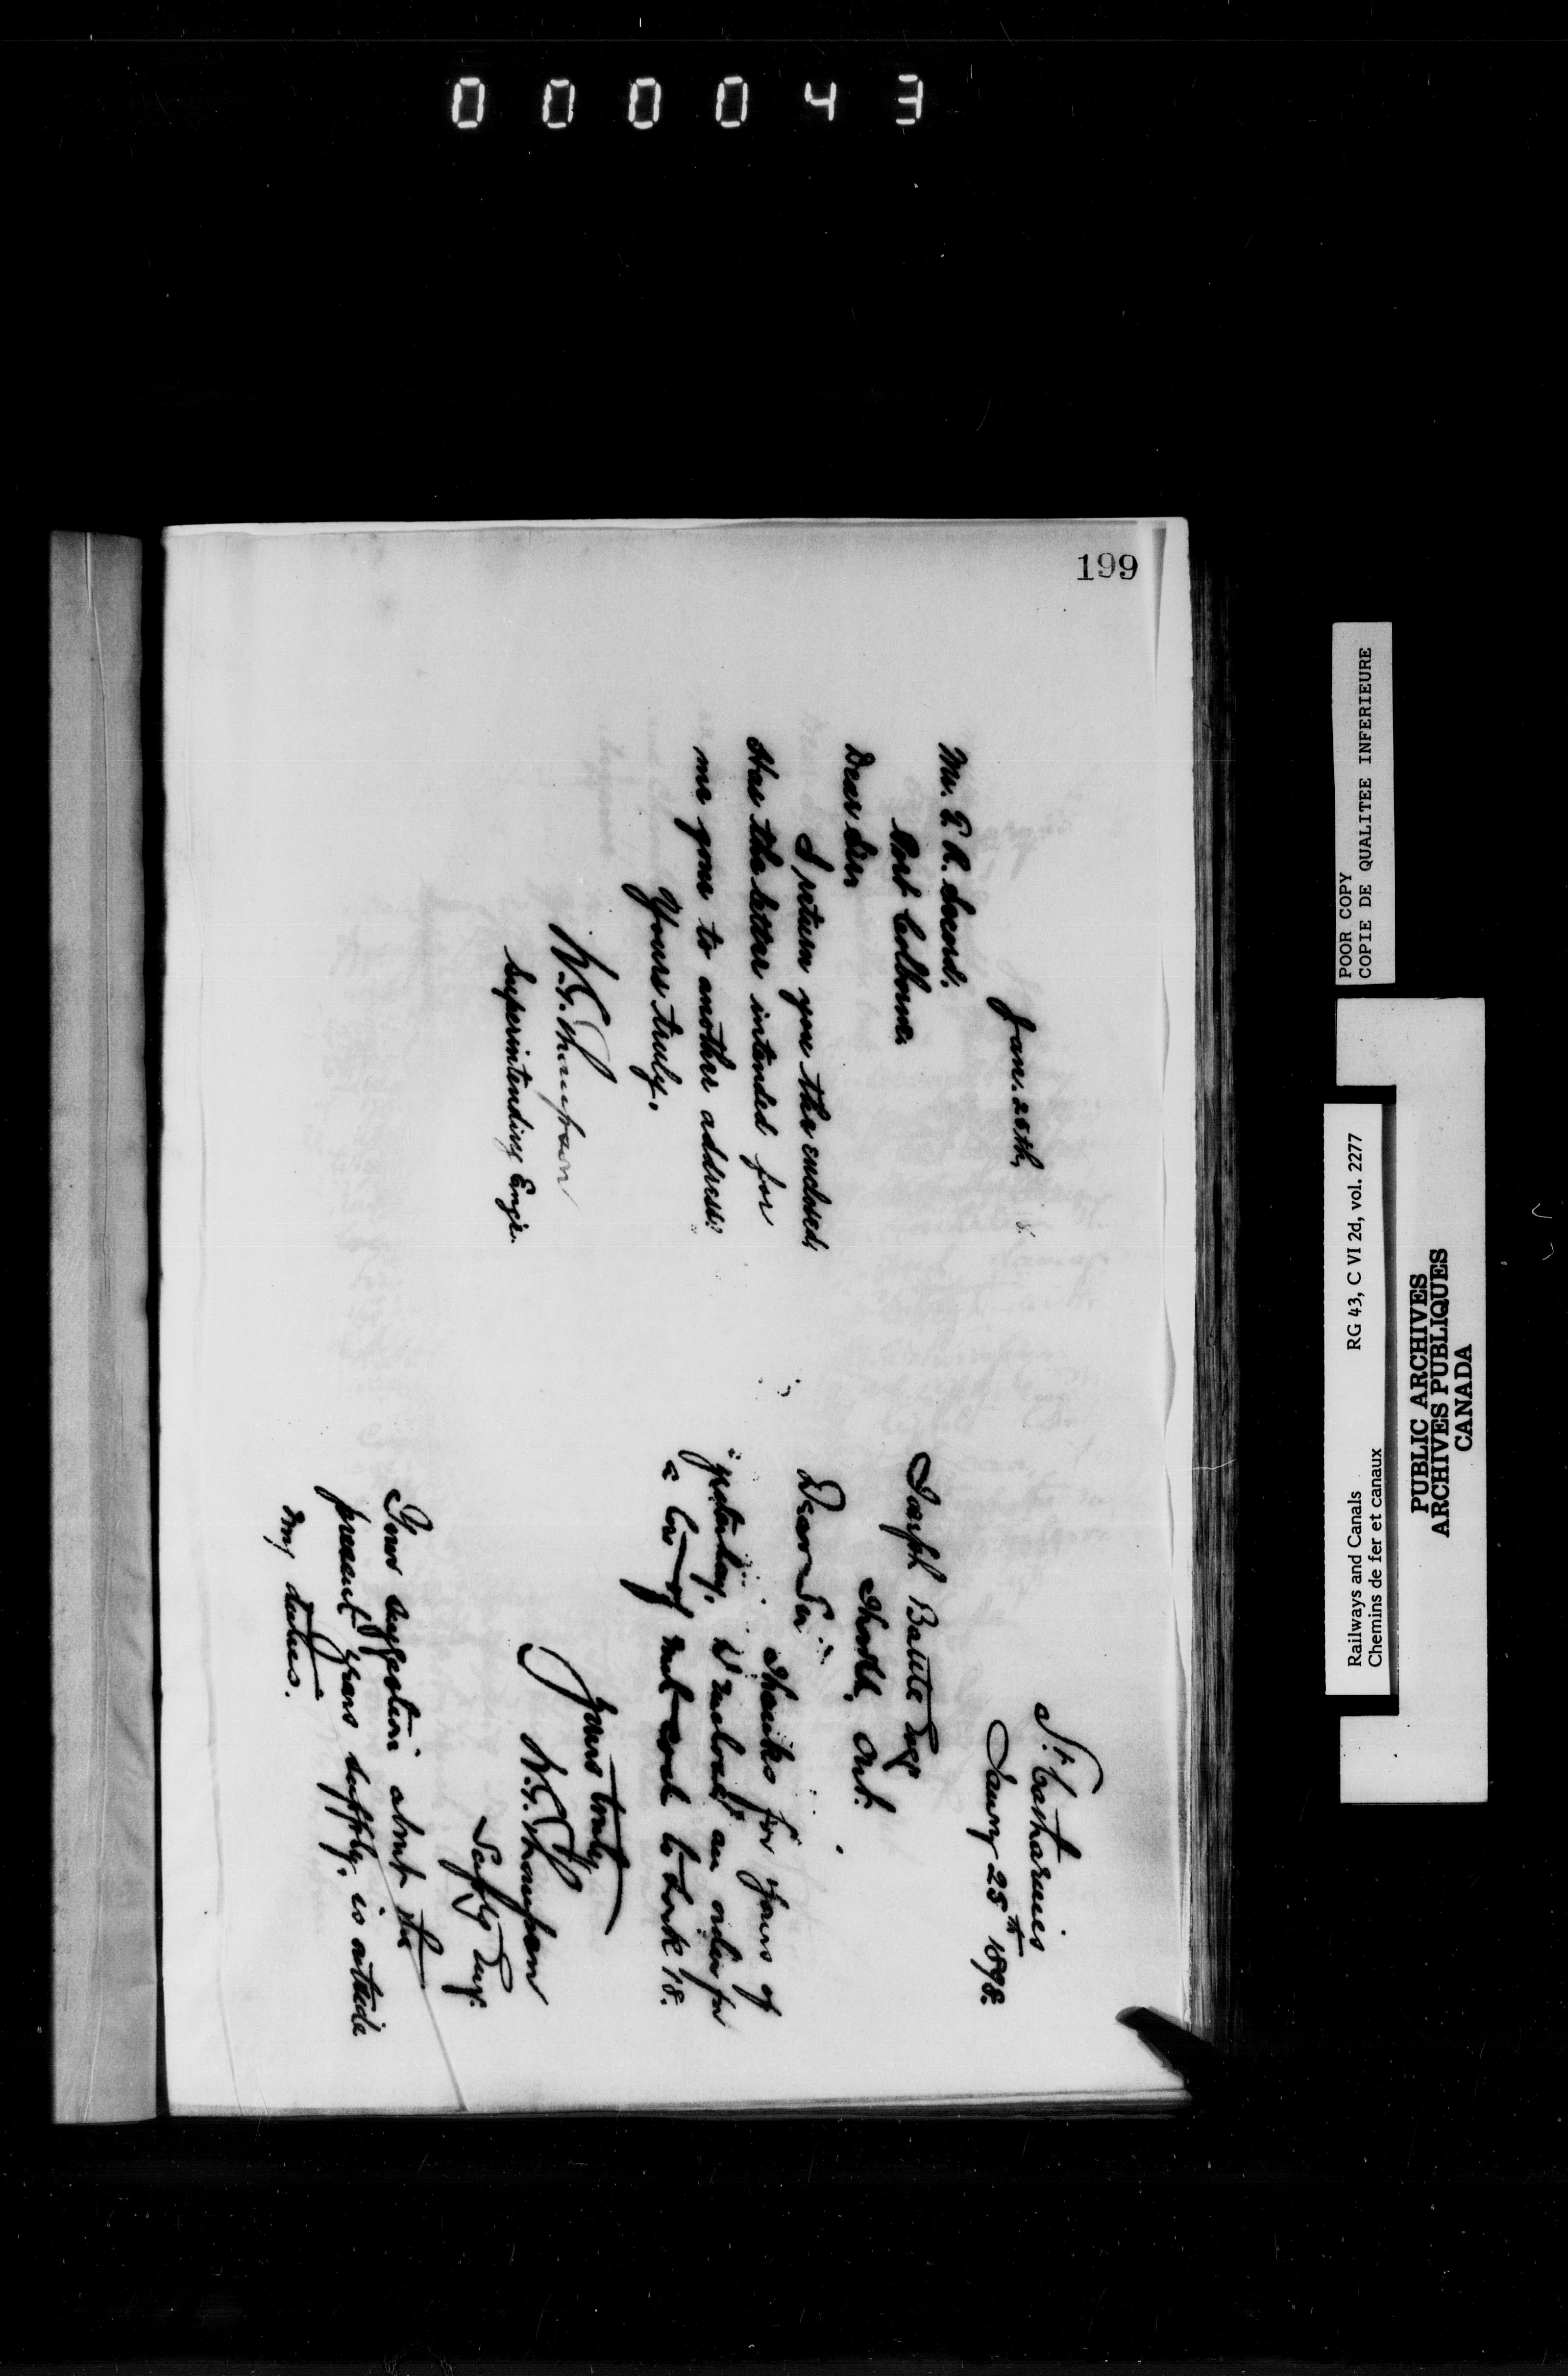 000043
199
Jan. 25th, 8.
Mr. E. R. Secord.
Port Colborne.
Dear Sir
I return you the enclosed.
Has the letter intended for
me gone to another address?
Yours truly.
W. G. Thompson
Superintending Engr.
St. Catharines
January 25th 1898.
Joseph Battle Esq
Thorold, Ont.
Dear Sir
Thanks for yours of
yesterday. I enclose an order for
a Car of nut coal to Lock 18.
Yours truly
W. G. Thompson
Suptg Engr.
Your suggestion about the
present years supply, is outside
my duties.
POOR COPY
COPIE DE QUALITEE INFERIEURE
Railways and Canals RG 43, C VI 2d, vol. 2277
Chemins de fer et canaux
PUBLIC ARCHIVES
ARCHIVES PUBLIQUES
CANADA